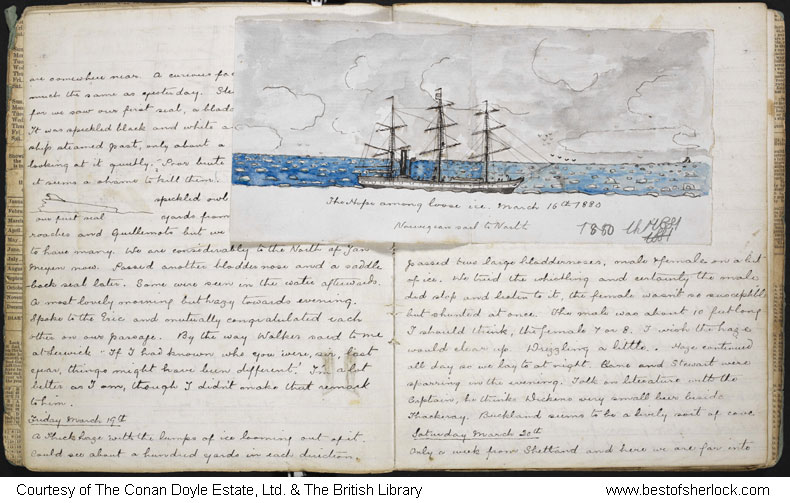 are somewhere near. A curious
much the same as yesterday.
for we saw our first seal, a
It was speckled black and white
ship steamed past, only about a
looking at it quietly. Poor brute
it seems a shame to kill them.
speckled owl
our first seal
yards from
roaches and Guillemots but we
to have many. We are considerably to the North of Jan
Meyen now. Passed another bladdernose and a saddle
back seal later. Some were seen in the water afterwards.
A most lovely morning but hazy towards evening.
Spoke to the Eric and mutually congratulated each
other on our passage. By the way Walker said to me
at Lerwick "If I had known who you were, sir, last
year, things might have been different." I'm a lot
better as I am, though I didn't make that remark
to him.
Friday March 19th
A thick haze with the lumps of ice looming out of it.
Could see about a hundred yards in each direction.
The Hope among loose ice. March 16th 1880
Norwegian sail to North
1880
passed two large bladdernoses, male & female on a bit
of ice. We tried the whistling and certainly the male
did stop and listen to it, the female wasn't so susceptible
but shunted at once. The male was about 10 feet long
I should think, the female 7 or 8. I wish the haze
would clear up. Drizzling a little. Haze continued
all day so we lay to at night. and Stewart were
sparring in the evening. Talk on literature with the
Captain, he thinks Dickens very small beer beside
Thackeray. Buckland seems to be a lively sort of cove
Saturday March 20th
Only a week from Shetland and here we are far into
Courtesy of The Conan Doyle Estate, Ltd. & The British Library
www.bestofsherlock.com